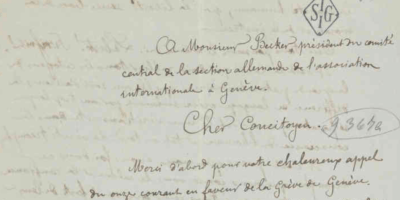 SIIG
A Monsieur Becker président du comité
central de la section allemande de l'association
internationale à Genève.
Cher Concitoyen.
Merci d'abord pour votre chaleureux appel
du onze courant en faveur de la grève de Genève.